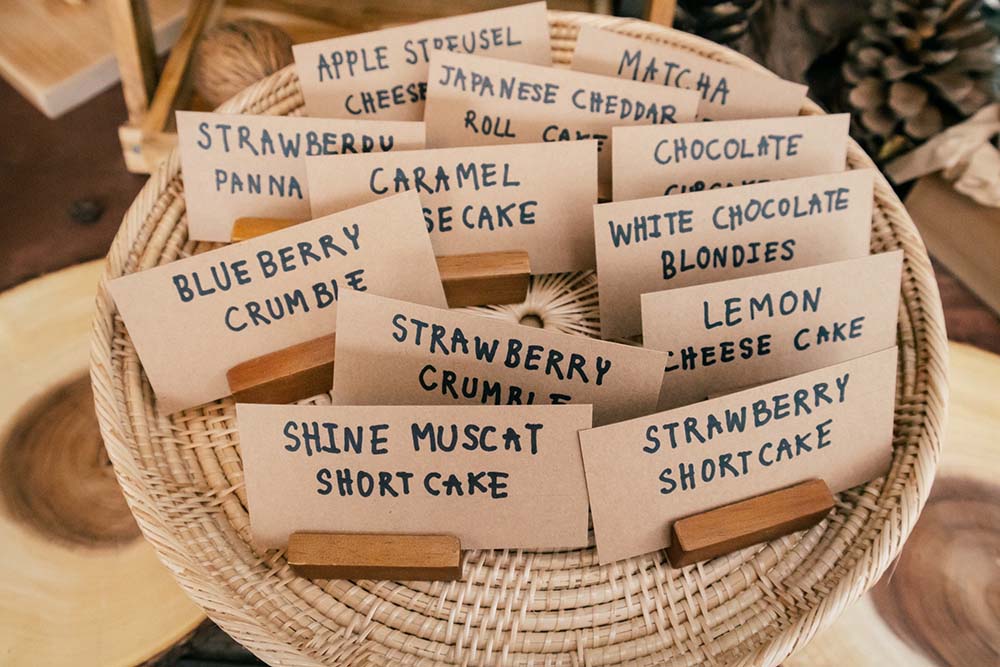 APPLE STREUSEL
CHEESE
JAPANESE CHEDDAR
ROLL CAKE
MATCHA
STRAWBERRY
PANNA
CARAMEL
SE CAKE
CHOCOLATE
CUPCAKE
WHITE CHOCOLATE
BLONDIES
BLUEBERRY
CRUMBLE
LEMON
CHEESE CAKE
STRAWBERRY
CRUMBLE
SHINE MUSCAT
SHORT CAKE
STRAWBERRY
SHORT CAKE